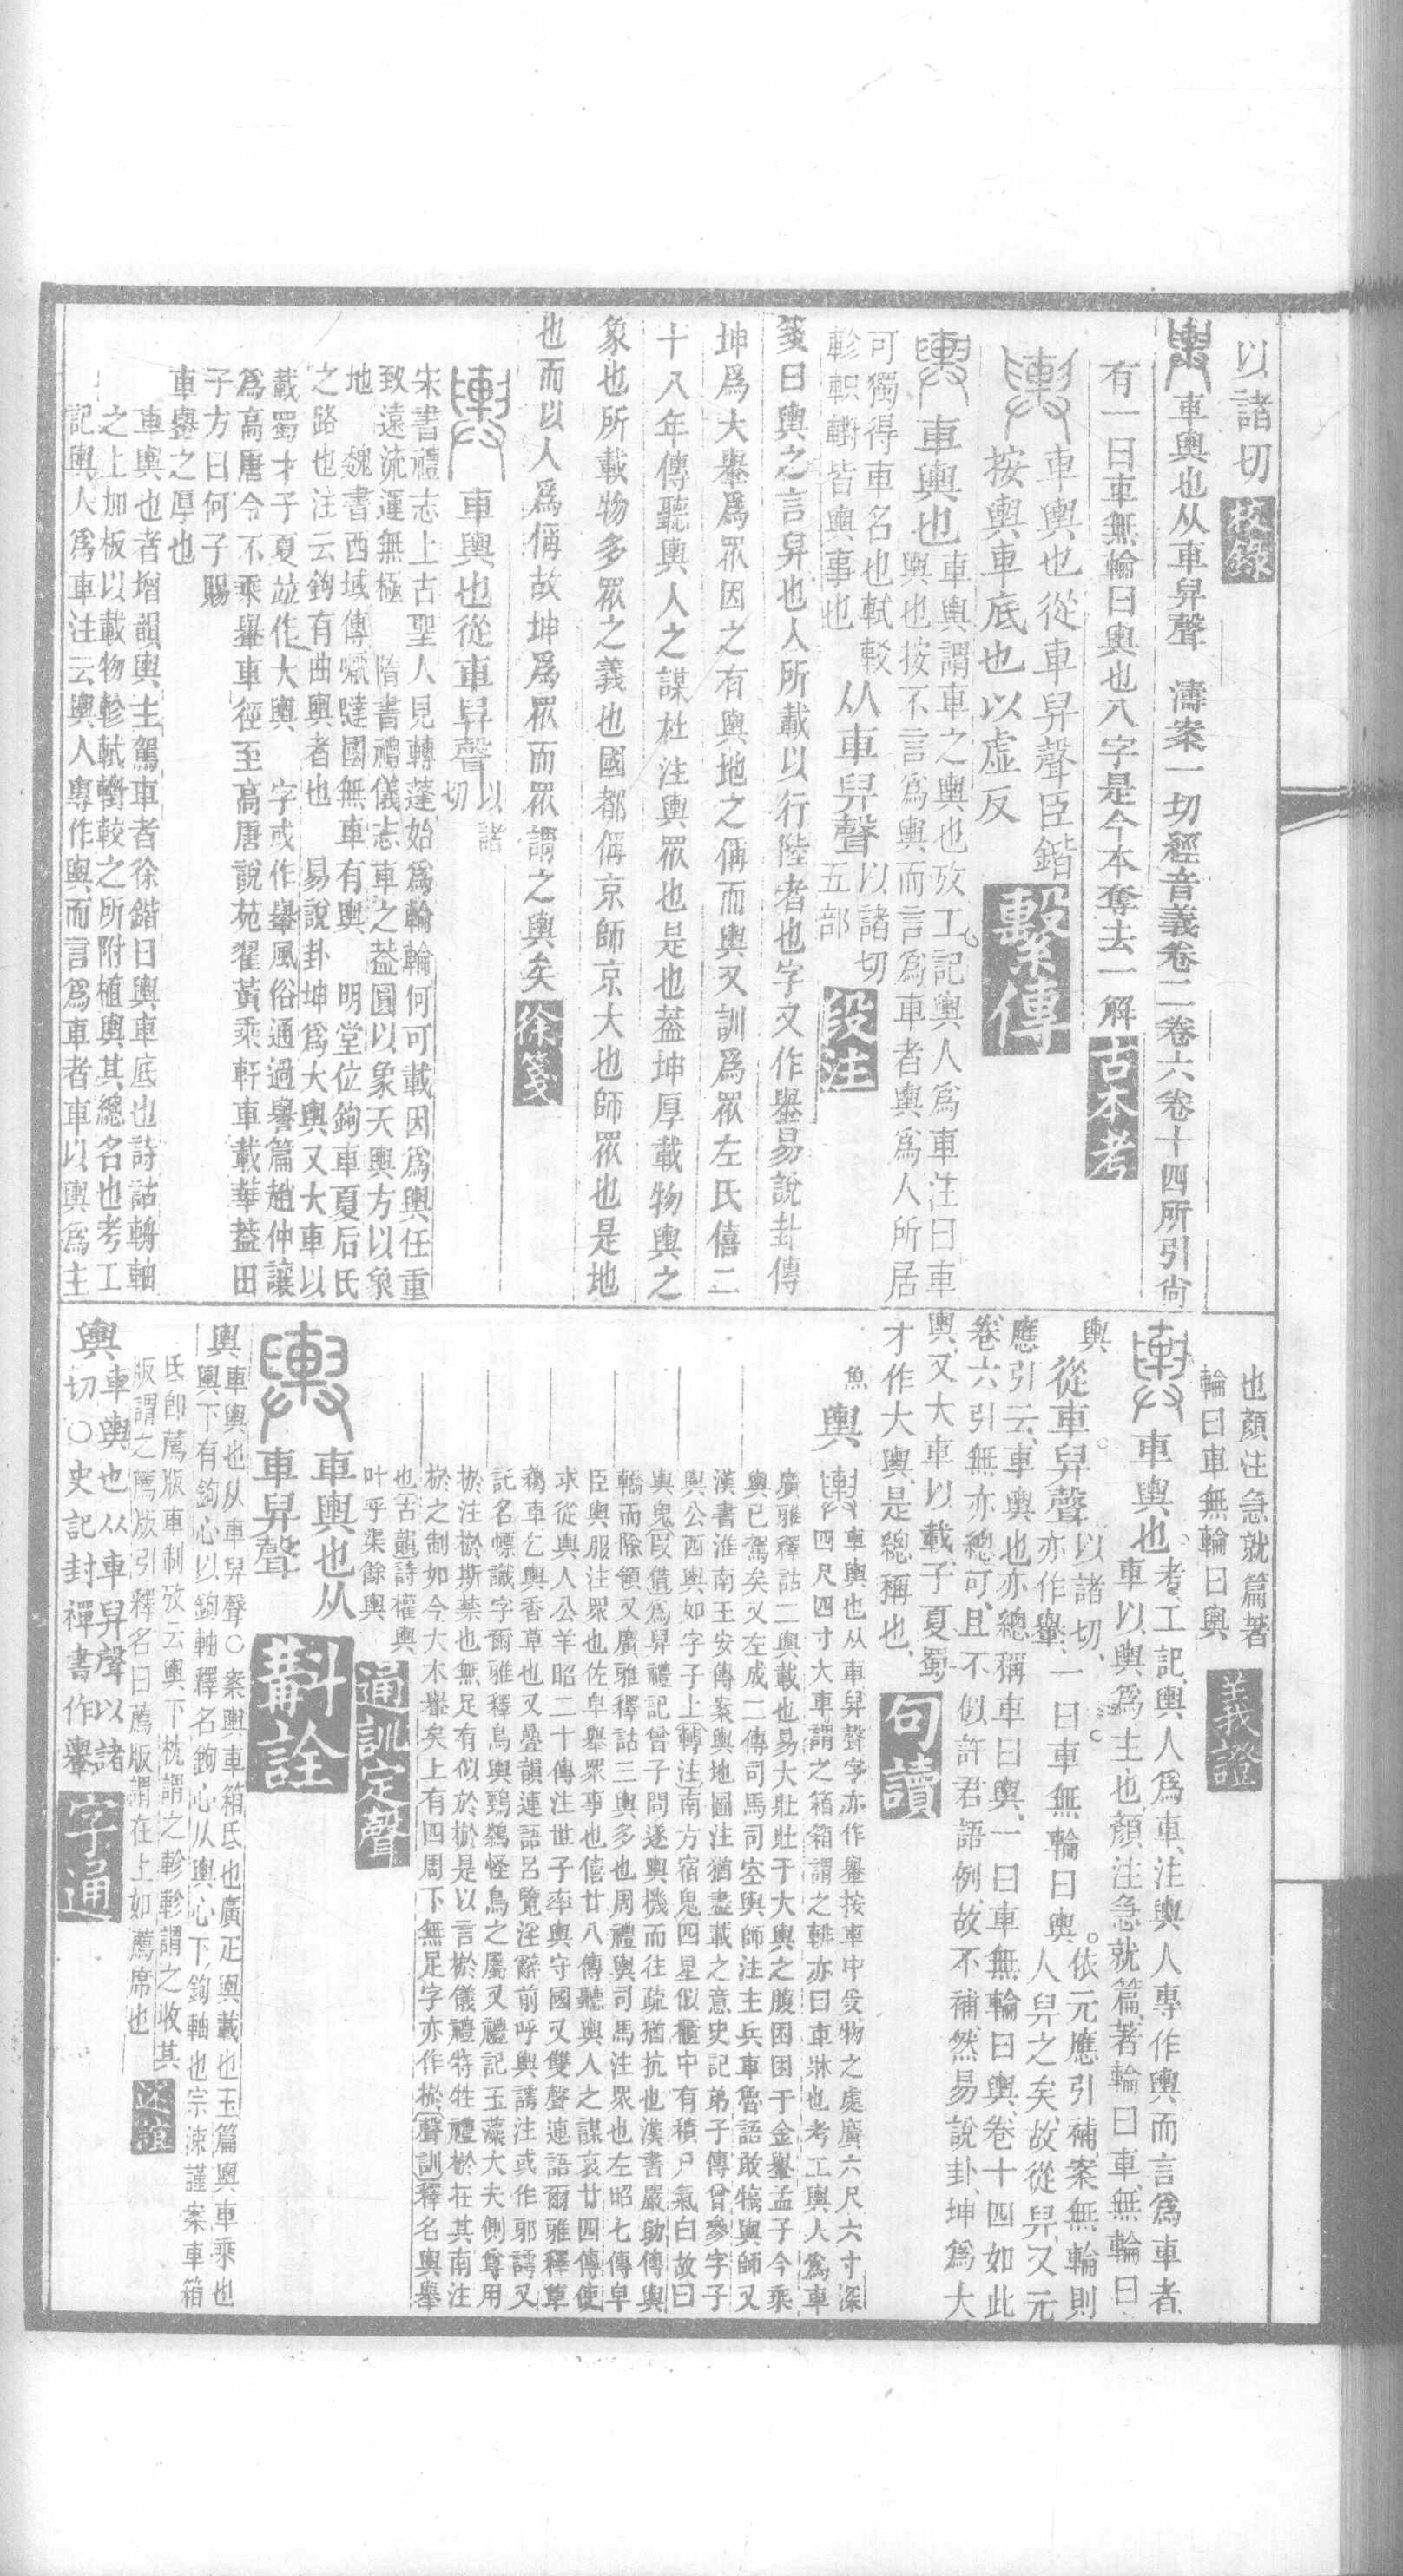 以諸切 校錄
車輿也从車舁聲 濤案一切經音義卷二卷六卷十四所引尙
有一曰車無輪曰輿也八字是今本奪去一解 古本考
車輿也從車舁聲臣鍇
按輿車底也以虛反 繫傳
車輿也 車輿謂車之輿也攷工記輿人爲車注曰車
輿也按不言爲輿而言爲車者輿爲人所居
可獨得車名也軾較
軫軹轛皆輿事也 从車舁聲 以諸切
五部 段注
箋曰輿之言舁也人所載以行陸者也字又作轝易說卦傳
坤爲大轝爲眾因之有輿地之偁而輿又訓爲眾左氏僖二
十八年傳聽輿人之謀杜注輿眾也是也葢坤厚載物輿之
象也所載物多眾之義也國都偁京師京大也師眾也是地
也而以人爲偁故坤爲眾而眾謂之輿矣 徐箋
車輿也從車舁聲 以諸
切
宋書禮志上古聖人見轉蓬始爲輪輪何可載因爲輿任重
致遠流運無極 隋書禮儀志車之葢圓以象天輿方以象
地 魏書西域傳嚈噠國無車有輿 明堂位鉤車夏后氏
之路也注云鉤有曲輿者也 易說卦坤爲大輿又大車以
載蜀才子夏竝作大輿 字或作轝風俗通過譽篇趙仲讓
爲高唐令不乘轝車徑至高唐說苑翟黃乘軒車載華葢田
子方曰何子賜
車轝之厚也
車輿也者增韻輿主駕車者徐鍇曰輿車底也詩詁輈軸
之上加板以載物軫軾轛較之所附植輿其總名也考工
記輿人爲車注云輿人專作輿而言爲車者車以輿爲主
也顏注急就篇著
輪曰車無輪曰輿 義證
車輿也 考工記輿人爲車注輿人專作輿而言爲車者
車以輿爲主也顏注急就篇著輪曰車無輪曰
輿 從車舁聲 以諸切
亦作轝 一曰車無輪曰輿 依元應引補案無輪則
人舁之矣故從舁又元
應引云車輿也亦總稱車曰輿一曰車無輪曰輿卷十四如此
卷六引無亦總可且不似許君語例故不補然易說卦坤爲大
輿又大車以載子夏蜀
才作大輿是總稱也 句讀
魚
輿 車輿也从車舁聲字亦作轝按車中受物之處廣六尺六寸深
四尺四寸大車謂之箱謂之輫亦曰車牀也考工輿人爲車
廣雅釋詁二輿載也易大壯壯于大輿之腹困困于金轝孟子今乘
輿已駕矣又左成二傳司馬司空輿師注主兵車魯語敢犒輿師又
漢書淮南王安傳案輿地圖注猶盡載之意史記弟子傳曾參字子
輿公西輿如字子上轉注南方宿鬼四星似櫃中有積尸氣白故曰
輿鬼叚借爲舁禮記曾子問遂輿機而往疏猶抗也漢書嚴助傳輿
轎而隃領又廣雅釋詁三輿多也周禮輿司馬注眾也左昭七傳皁
臣輿服注眾也佐皁舉眾事也僖廿八傳聽輿人之謀哀廿四傳使
求從輿人公羊昭二十傳注世子率輿守國又雙聲連語爾雅釋草
藒車乞輿香草也又疊韻連語呂覽淫辭前呼輿謣注或作邪謣又
託名幖識字爾雅釋鳥輿鵛鷋怪鳥之屬又禮記玉藻大夫側尊用
棜注棜斯禁也無足有似於棜是以言棜儀禮特牲禮棜在其南注
棜之制如今大木轝矣上有四周下無足字亦作棜聲訓釋名輿舉
也古韻詩權輿
叶乎渠餘輿 通訓定聲
車輿也从
車舁聲 斠詮
輿 車輿也从車舁聲○案輿車箱氐也廣疋輿載也玉篇輿車乘也
輿下有鉤心以鉤軸釋名鉤心从輿心下鉤軸也宗涑謹案車箱
氐卽薦版車制攷云輿下枕謂之軫軫謂之收其
版謂之薦版引釋名曰薦版謂在上如薦席也 述誼
輿 車輿也从車舁聲以諸
切○史記封禪書作轝 字通